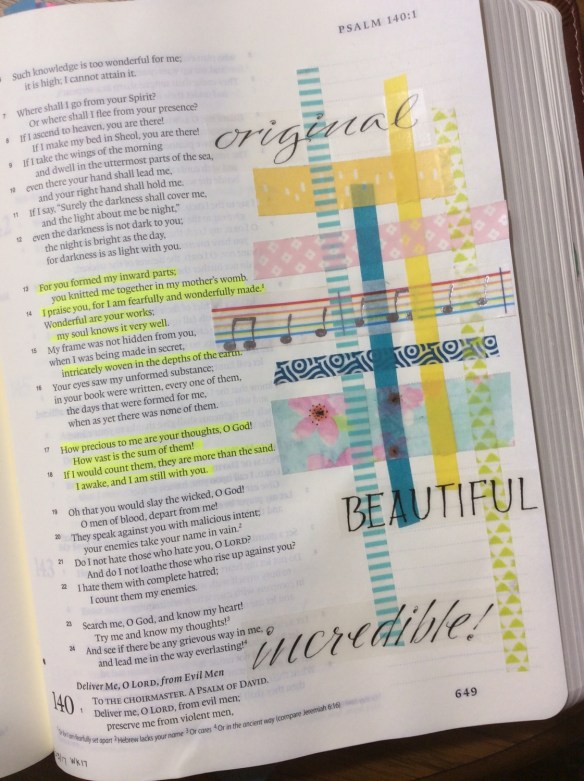 PSALM 140:1
Such knowledge is too wonderful for me;
it is high; I cannot attain it.
7 Where shall I go from your Spirit?
Or where shall I flee from your presence?
8 If I ascend to heaven, you are there!
If I make my bed in Sheol, you are there!
9 If I take the wings of the morning
and dwell in the uttermost parts of the sea,
10 even there your hand shall lead me,
and your right hand shall hold me.
11 If I say, "Surely the darkness shall cover me,
and the light about me be night,"
12 even the darkness is not dark to you;
the night is bright as the day,
for darkness is as light with you.
13 For you formed my inward parts;
you knitted me together in my mother's womb.
14 I praise you, for I am fearfully and wonderfully made.¹
Wonderful are your works;
my soul knows it very well.
15 My frame was not hidden from you,
when I was being made in secret,
intricately woven in the depths of the earth.
16 Your eyes saw my unformed substance;
in your book were written, every one of them,
the days that were formed for me,
when as yet there was none of them.
17 How precious to me are your thoughts, O God!
How vast is the sum of them!
18 If I would count them, they are more than the sand.
I awake, and I am still with you.
19 Oh that you would slay the wicked, O God!
O men of blood, depart from me!
20 They speak against you with malicious intent;
your enemies take your name in vain.²
21 Do I not hate those who hate you, O LORD?
And do I not loathe those who rise up against you?
22 I hate them with complete hatred;
I count them my enemies.
23 Search me, O God, and know my heart!
Try me and know my thoughts!³
24 And see if there be any grievous way in me,
and lead me in the way everlasting!⁴
Deliver Me, O LORD, from Evil Men
140 TO THE CHOIRMASTER. A PSALM OF DAVID.
1 Deliver me, O LORD, from evil men;
preserve me from violent men,
fearfully set apart ² Hebrew lacks your name ³ Or cares ⁴ Or in the ancient way (compare Jeremiah 6:16)
649
WK17
original
BEAUTIFUL
incredible!